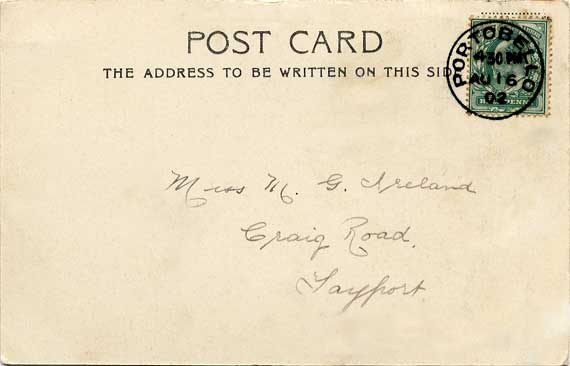 POST CARD
THE ADDRESS TO BE WRITTEN ON THIS SID
PORTOBELLO
4.30 PM
AU 16
02
Miss M. G. Ireland
Craig Road,
Tayport.